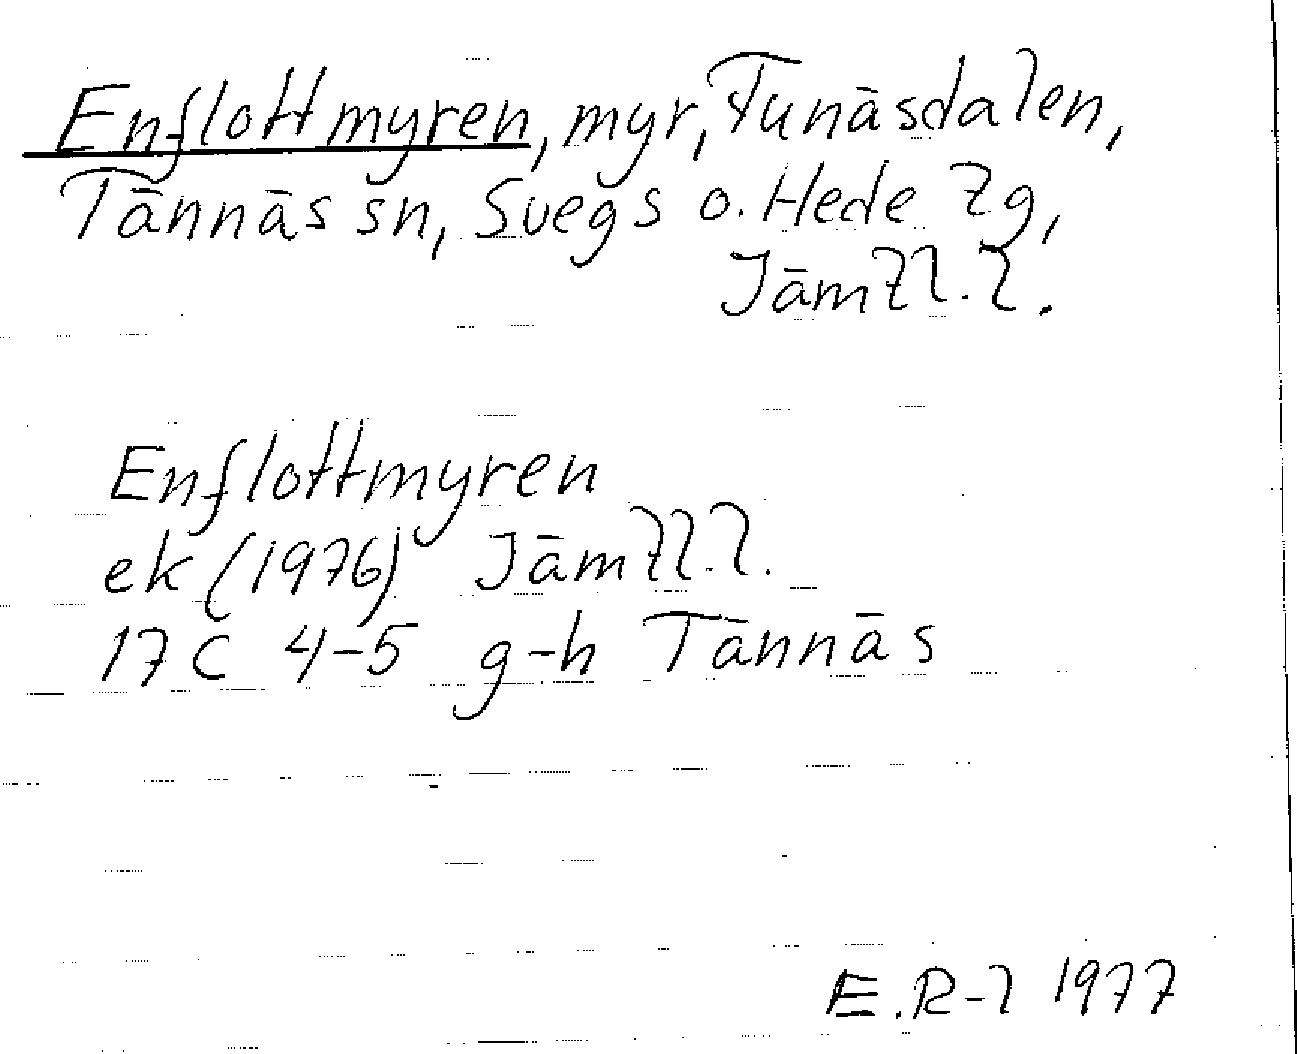 Enflottmyren, myr, Funäsdalen,
Tännäs sn, Svegs o. Hede tg,
Jämtl. l.
Enflottmyren
ek (1976) Jämtl. l.
17 C 4-5 g-h Tännäs
E. R-l 1977